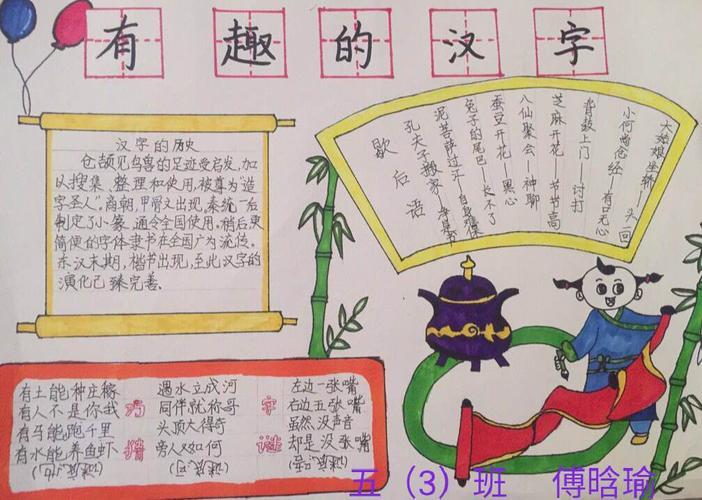 有趣的汉字
汉字的历史
仓颉见鸟兽的足迹受启发,加
以搜集、整理和使用,被尊为“造
字圣人”。商朝,甲骨文出现,秦统一后
制定了小篆,通令全国使用。稍后更
简便的字体隶书在全国广为流传。
东汉末期,楷书出现,至此汉字的
演化已臻完善。
大姑娘坐轿—头一回
小何尚念经—有口无心
背鼓上门—讨打
芝麻开花—节节高
八仙聚会—神聊
蚕豆开花—黑心
兔子的尾巴—长不了
泥菩萨过江—自身难保
孔夫子搬家—净是书
歇后语
有土能种庄稼
有人不是你我
有马能跑千里
有水能养鱼虾
巧猜
遇水立成河
同伴就称哥
头顶大得奇
旁人又如何
字谜
左边一张嘴
右边五张嘴
虽然没声音
却是没张嘴
五（3）班 傅晗瑜